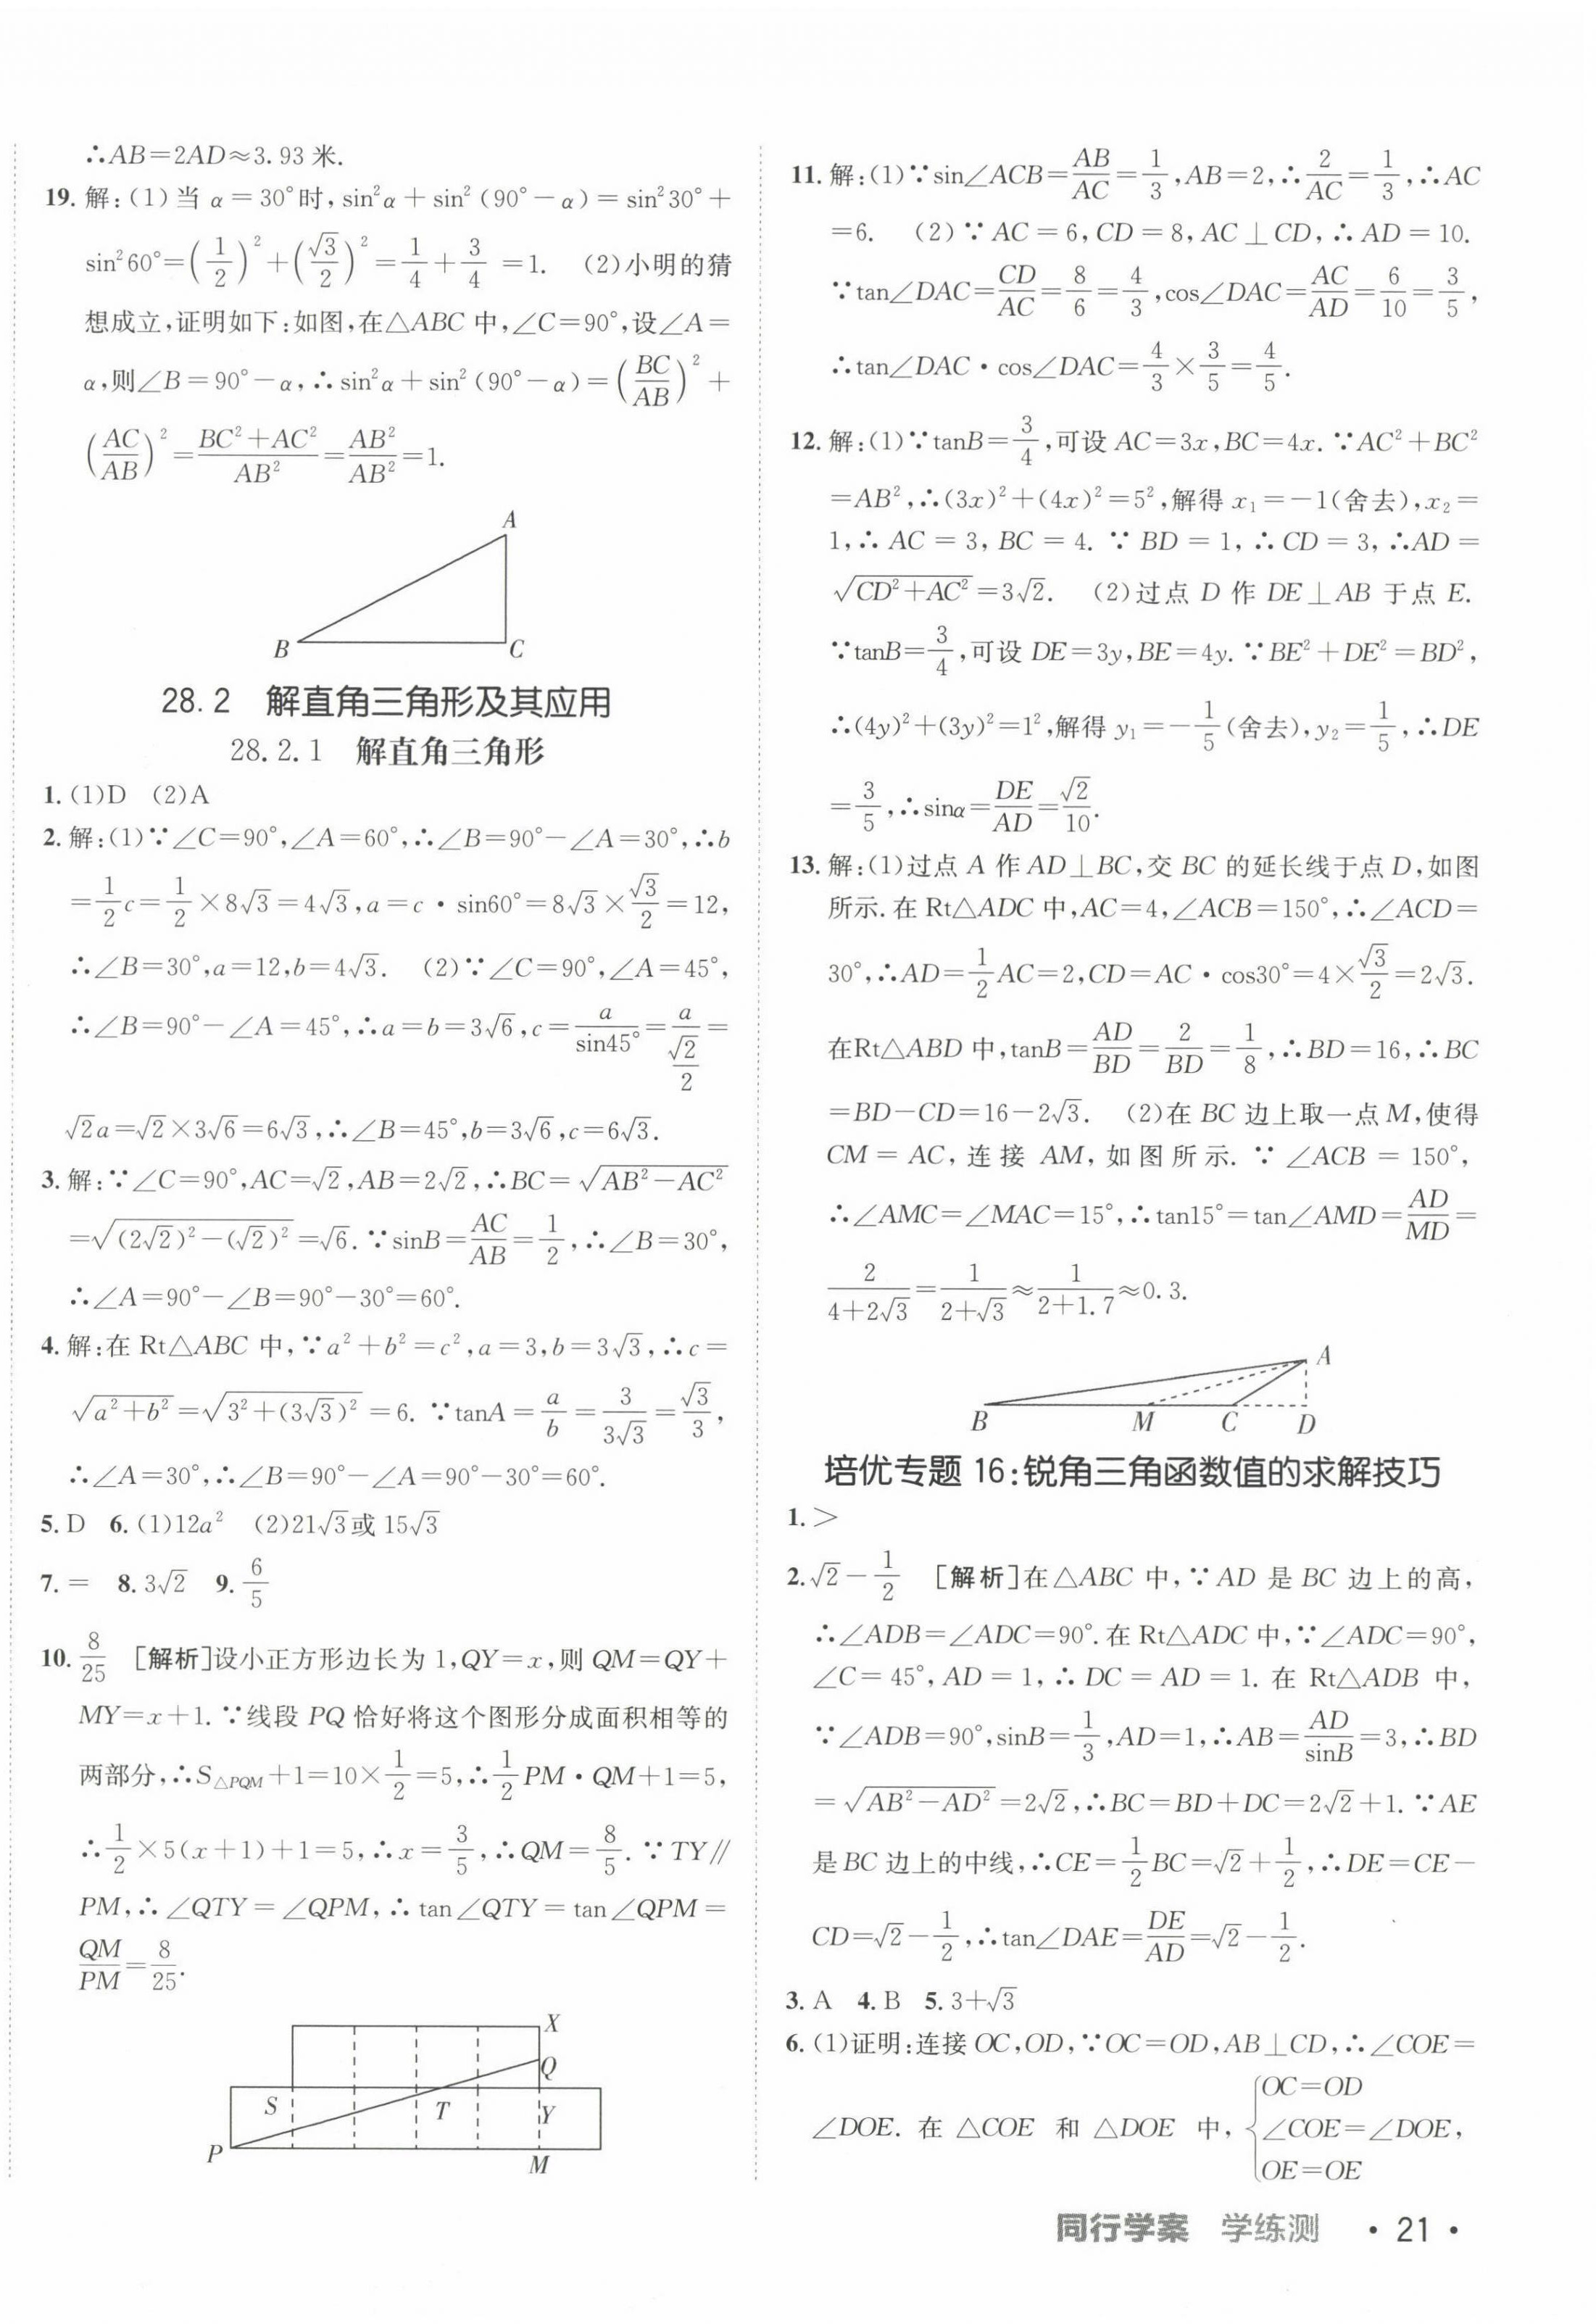 ∴AB=2AD≈3.93 米.
19. 解:(1)当 α=30°时,sin²α+sin²(90°-α)=sin²30°+
sin²60°=(1/2)²+(√3/2)²=1/4+3/4=1. (2)小明的猜
想成立,证明如下:如图,在△ABC 中,∠C=90°,设∠A=
α,则∠B=90°-α,∴sin²α+sin²(90°-α)=(BC/AB)²+
(AC/AB)²=(BC²+AC²)/AB²=AB²/AB²=1.
A
B
C
28.2 解直角三角形及其应用
28.2.1 解直角三角形
1. (1)D (2)A
2. 解:(1)∵∠C=90°,∠A=60°,∴∠B=90°-∠A=30°,∴b
=1/2c=1/2×8√3=4√3,a=c·sin60°=8√3×√3/2=12,
∴∠B=30°,a=12,b=4√3. (2)∵∠C=90°,∠A=45°,
∴∠B=90°-∠A=45°,∴a=b=3√6,c=a/sin45°=a/(√2/2)=
√2a=√2×3√6=6√3,∴∠B=45°,b=3√6,c=6√3.
3. 解:∵∠C=90°,AC=√2,AB=2√2,∴BC=√(AB²-AC²)
=√((2√2)²-(√2)²)=√6.∵sinB=AC/AB=1/2,∴∠B=30°,
∴∠A=90°-∠B=90°-30°=60°.
4. 解:在 Rt△ABC 中,∵a²+b²=c²,a=3,b=3√3,∴c=
√(a²+b²)=√(3²+(3√3)²)=6.∵tanA=a/b=3/(3√3)=√3/3,
∴∠A=30°,∴∠B=90°-∠A=90°-30°=60°.
5. D 6. (1)12a² (2)21√3或 15√3
7. = 8. 3√2 9. 6/5
10. 8/25 [解析]设小正方形边长为 1,QY=x,则 QM=QY+
MY=x+1.∵线段 PQ 恰好将这个图形分成面积相等的
两部分,∴S△PQM+1=10×1/2=5,∴1/2PM·QM+1=5,
∴1/2×5(x+1)+1=5,∴x=3/5,∴QM=8/5.∵TY∥
PM,∴∠QTY=∠QPM,∴tan∠QTY=tan∠QPM=
QM/PM=8/25.
X
Q
S
T
Y
P
M
11. 解:(1)∵sin∠ACB=AB/AC=1/3,AB=2,∴2/AC=1/3,∴AC
=6. (2)∵AC=6,CD=8,AC⊥CD,∴AD=10.
∵tan∠DAC=CD/AC=8/6=4/3,cos∠DAC=AC/AD=6/10=3/5,
∴tan∠DAC·cos∠DAC=4/3×3/5=4/5.
12. 解:(1)∵tanB=3/4,可设 AC=3x,BC=4x.∵AC²+BC²
=AB²,∴(3x)²+(4x)²=5²,解得 x₁=-1(舍去),x₂=
1,∴AC=3,BC=4.∵BD=1,∴CD=3,∴AD=
√(CD²+AC²)=3√2. (2)过点 D 作 DE⊥AB 于点 E.
∵tanB=3/4,可设 DE=3y,BE=4y.∵BE²+DE²=BD²,
∴(4y)²+(3y)²=1²,解得 y₁=-1/5(舍去),y₂=1/5,∴DE
=3/5,∴sinα=DE/AD=√2/10.
13. 解:(1)过点 A 作 AD⊥BC,交 BC 的延长线于点 D,如图
所示.在 Rt△ADC 中,AC=4,∠ACB=150°,∴∠ACD=
30°,∴AD=1/2AC=2,CD=AC·cos30°=4×√3/2=2√3.
在Rt△ABD 中,tanB=AD/BD=2/BD=1/8,∴BD=16,∴BC
=BD-CD=16-2√3. (2)在 BC 边上取一点 M,使得
CM=AC,连接 AM,如图所示.∵∠ACB=150°,
∴∠AMC=∠MAC=15°,∴tan15°=tan∠AMD=AD/MD=
2/(4+2√3)=1/(2+√3)≈1/(2+1.7)≈0.3.
A
B
M
C
D
培优专题 16:锐角三角函数值的求解技巧
1. >
2. √2-1/2 [解析]在△ABC 中,∵AD 是 BC 边上的高,
∴∠ADB=∠ADC=90°.在 Rt△ADC 中,∵∠ADC=90°,
∠C=45°,AD=1,∴DC=AD=1.在 Rt△ADB 中,
∵∠ADB=90°,sinB=1/3,AD=1,∴AB=AD/sinB=3,∴BD
=√(AB²-AD²)=2√2,∴BC=BD+DC=2√2+1.∵AE
是 BC 边上的中线,∴CE=1/2BC=√2+1/2,∴DE=CE-
CD=√2-1/2,∴tan∠DAE=DE/AD=√2-1/2.
3. A 4. B 5. 3+√3
6. (1)证明:连接 OC,OD,∵OC=OD,AB⊥CD,∴∠COE=
∠DOE.在△COE 和△DOE 中,{OC=OD
∠COE=∠DOE,
OE=OE
同行学案 学练测 ·21·